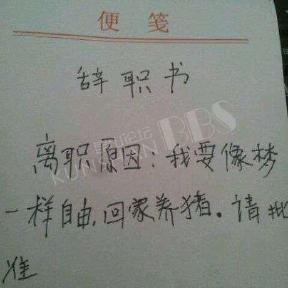 便笺
辞职书
论坛
BBS
离职原因:我要像梦
一样自由,回家养猪。请批
准